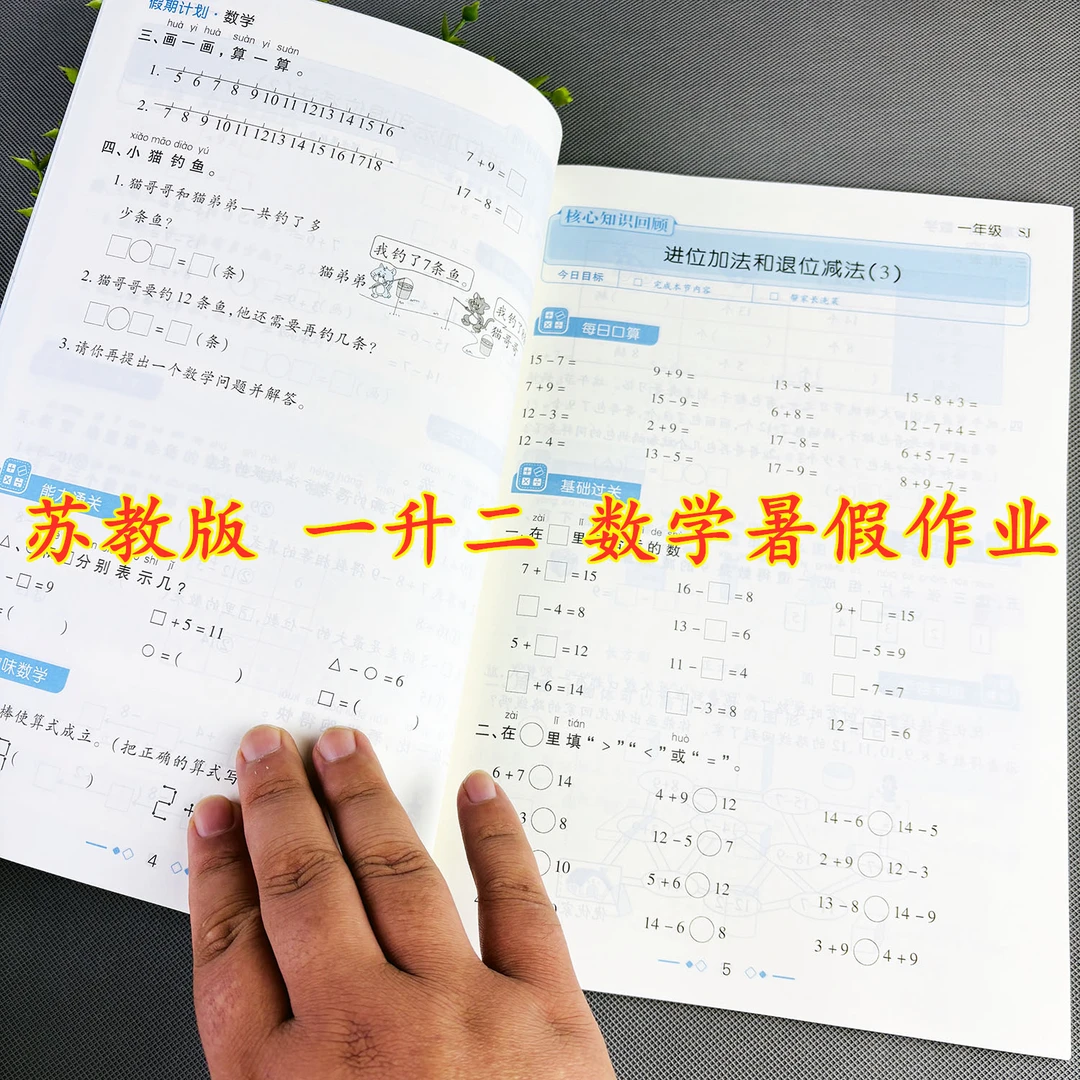 假期计划·数学
huà yi huà suàn yi suàn
三、画一画，算一算。
1. 5 6 7 8 9 10 11 12 13 14 15 16
7+9=□
2. 7 8 9 10 11 12 13 14 15 16 17 18
17-8=□
xiǎo māo diào yú
四、小猫钓鱼。
1. 猫哥哥和猫弟弟一共钓了多
少条鱼？
□○□=□(条)
猫弟弟
我钓了7条鱼。
我钓了
猫哥哥
2. 猫哥哥要钓12条鱼，他还需要再钓几条？
□○□=□(条)
3. 请你再提出一个数学问题并解答。
能力通关
分别表示几？
-□=9
□+5=11
△-○=6
=( )
○=( )
□=( )
味数学
棒使算式成立。(把正确的算式写
2+
4
核心知识回顾
一年级 SJ
进位加法和退位减法(3)
今日目标 □ 完成本节内容 □ 帮家长洗菜
每日口算
15-7= 9+9= 13-8= 15-8+3=
7+9= 15-9= 6+8= 12-7+4=
12-3= 2+9= 17-8= 6+5-7=
12-4= 13-5= 17-9= 8+9-7=
基础过关
苏教版 一升二 数学暑假作业
zài lǐ de shù
一、在□里 的数
7+□=15 16-□=8 9+□=15
□-4=8 13-□=6 □-5=9
5+□=12 11-□=4 □-7=7
□+6=14 □-3=8 12-□=6
zài lǐ tián huò
二、在○里填“>”“<”或“=”。
6+7○14 4+9○12 14-6○14-5
3○8 12-5○7 2+9○12-3
○10 5+6○12 13-8○14-9
14-6○8 3+9○4+9
5